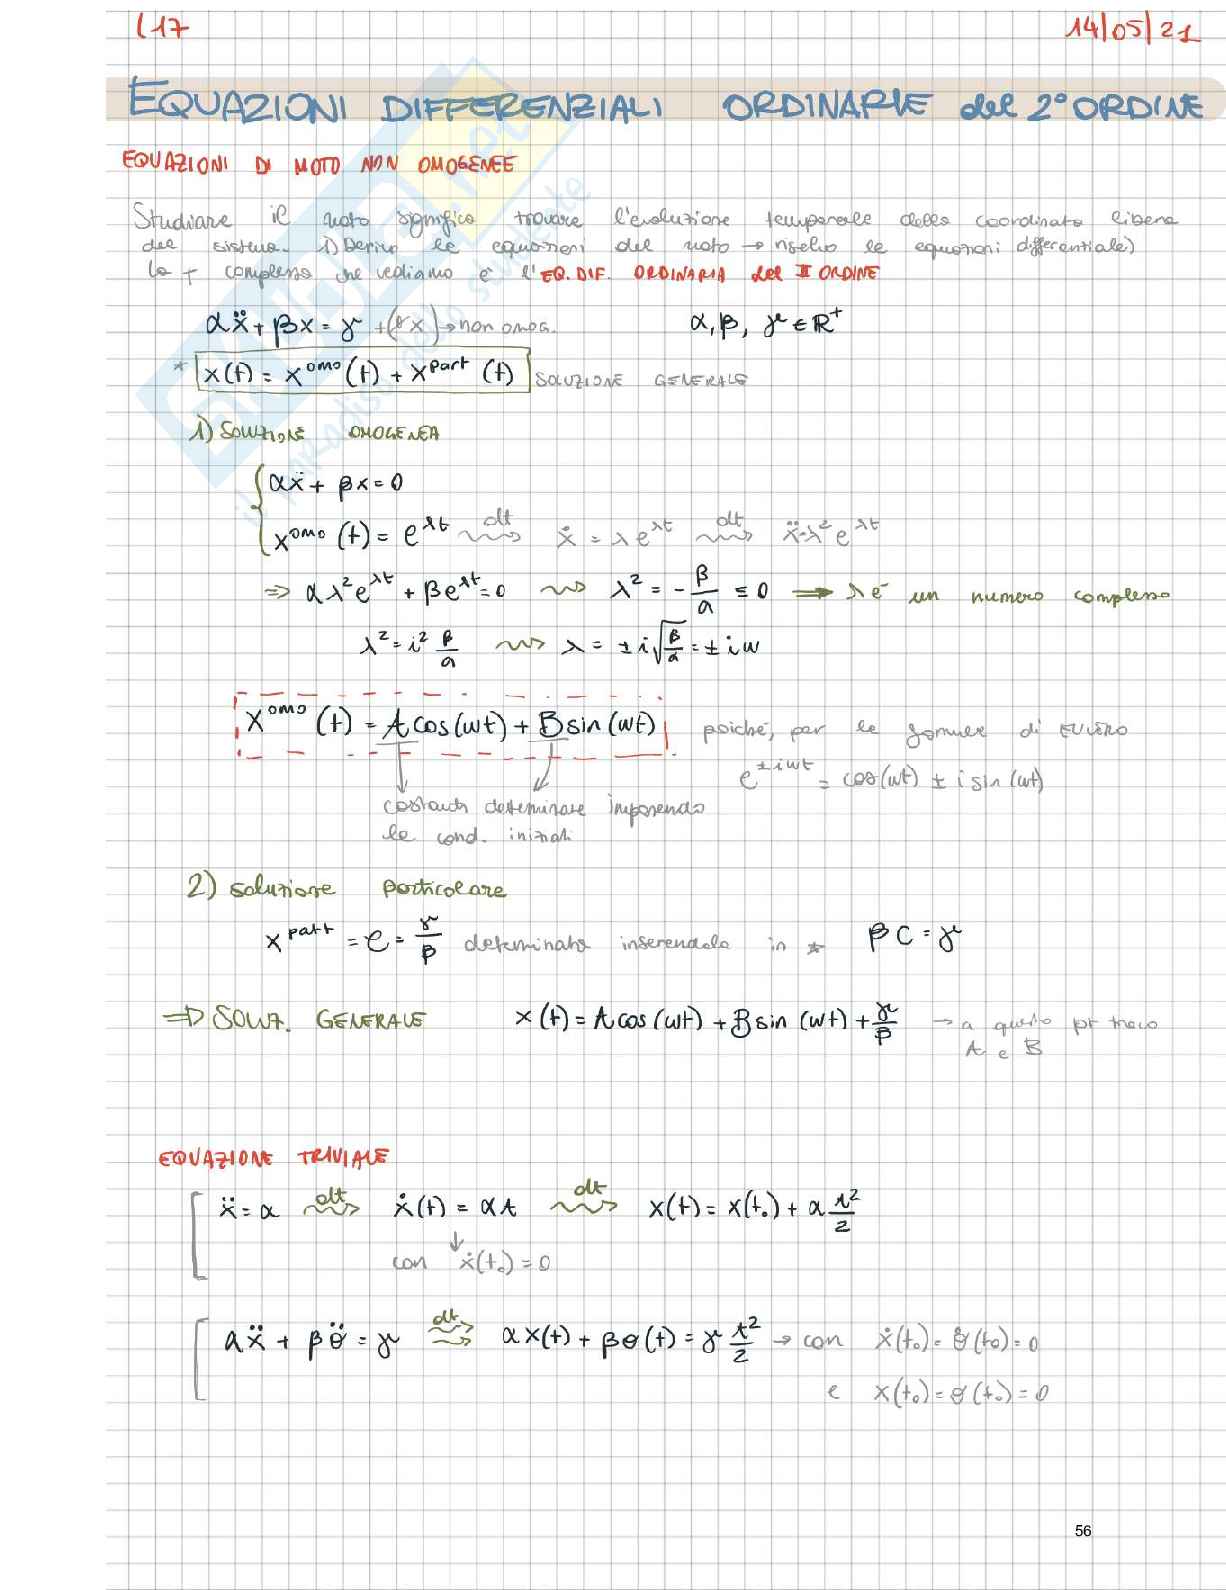 L17 14/05/21
EQUAZIONI DIFFERENZIALI ORDINARIE del 2° ORDINE
EQUAZIONI DI MOTO NON OMOGENEE
Studiare il moto significa trovare l'evoluzione temporale della coordinata libera
del sistema. 1) Derivo le equazioni del moto → risolvo le equazioni differentiale)
la + complessa che vediamo è l'EQ. DIF. ORDINARIA del II ORDINE
αẍ + βx = γ +(δẋ) → non omog. α, β, γ ∈ R⁺
* x(t) = x^omo (t) + x^part (t) SOLUZIONE GENERALE
1) SOLUZIONE OMOGENEA
αẍ + βx = 0
x^omo (t) = e^λt dt ẋ = λe^λt dt ẍ=λ²e^λt
⇒ αλ²e^λt + βe^λt = 0 ⇝ λ² = -β/α ≤ 0 ⇒ λ è un numero complesso
λ² = i² β/α ⇝ λ = ± i√(β/α) = ± iω
x^omo (t) = A cos(ωt) + B sin(ωt) poiché, per le formule di EULERO
e^±iωt = cos(ωt) ± i sin(ωt)
determinare imponendo
le cond. iniziali
2) soluzione particolare
x^part = C = γ/β determinata inserendola in * βC = γ
⇒ SOLUZ. GENERALE x(t) = A cos(ωt) + B sin(ωt) + γ/β → a questo pt trovo
A e B
EQUAZIONE TRIVIALE
ẍ = α dt ẋ(t) = αt dt x(t) = x(t₀) + α t²/2
con ẋ(t₀) = 0
αẍ + βθ̈ = γ dt αx(t) + βθ(t) = γ t²/2 → con ẋ(t₀) = θ̇(t₀) = 0
e x(t₀) = θ(t₀) = 0
56